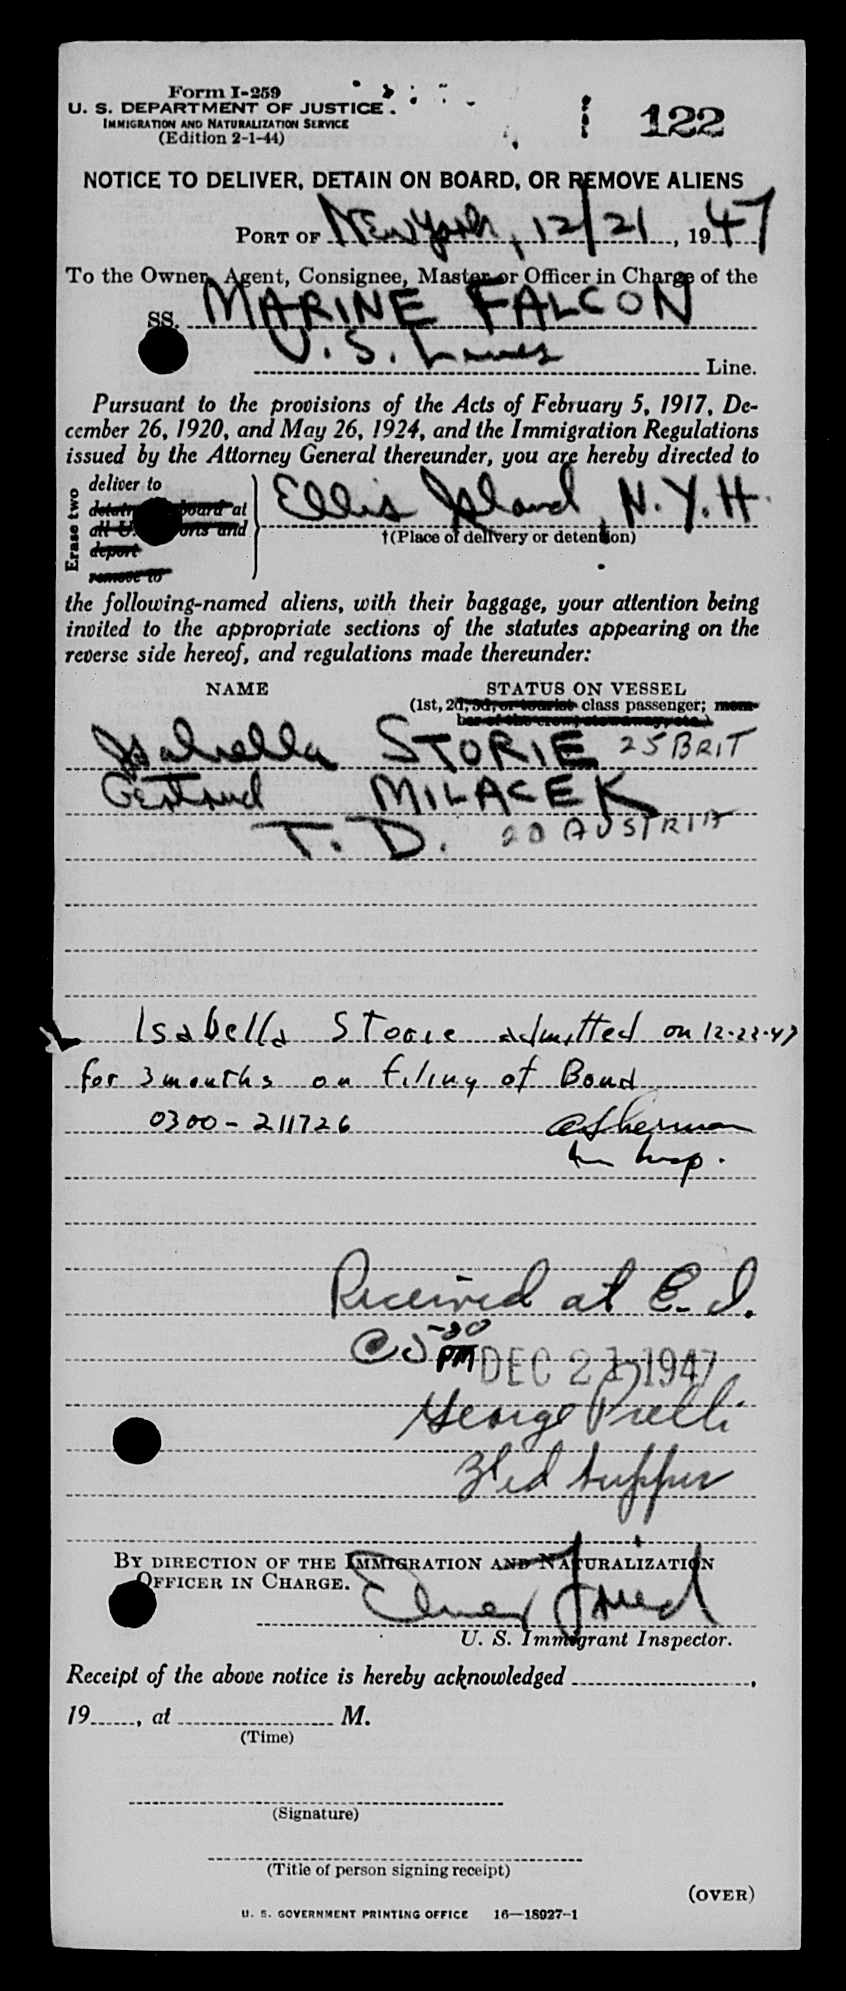 Form I-259
U. S. DEPARTMENT OF JUSTICE
IMMIGRATION AND NATURALIZATION SERVICE
(Edition 2-1-44)
122
NOTICE TO DELIVER, DETAIN ON BOARD, OR REMOVE ALIENS
PORT OF New York, 12/21, 1947
To the Owner, Agent, Consignee, Master or Officer in Charge of the
SS. MARINE FALCON
U.S. Lines Line.
Pursuant to the provisions of the Acts of February 5, 1917, De-
cember 26, 1920, and May 26, 1924, and the Immigration Regulations
issued by the Attorney General thereunder, you are hereby directed to
Erase two
deliver to
detain board at
all U. ports and
deport
remove to
Ellis Island, N.Y.H.
†(Place of delivery or detention)
the following-named aliens, with their baggage, your attention being
invited to the appropriate sections of the statutes appearing on the
reverse side hereof, and regulations made thereunder:
NAME STATUS ON VESSEL
(1st, 2d, 3d, or tourist class passenger; mem-
ber of the crew, stowaway, etc.)
Isabella STORIE 25 BRIT
Gertrud MILACEK
T. D. 20 AUSTRIA
Isabella Storie admitted on 12-22-47
for 3 months on filing of Bond
0300-211726 Sherman
Insp.
Received at E.I.
@ 5-30
PM DEC 21 1947
George
supper
BY DIRECTION OF THE IMMIGRATION AND NATURALIZATION
OFFICER IN CHARGE.
U. S. Immigrant Inspector.
Receipt of the above notice is hereby acknowledged
19, at M.
(Time)
(Signature)
(Title of person signing receipt)
(OVER)
U. S. GOVERNMENT PRINTING OFFICE 16—18927-1